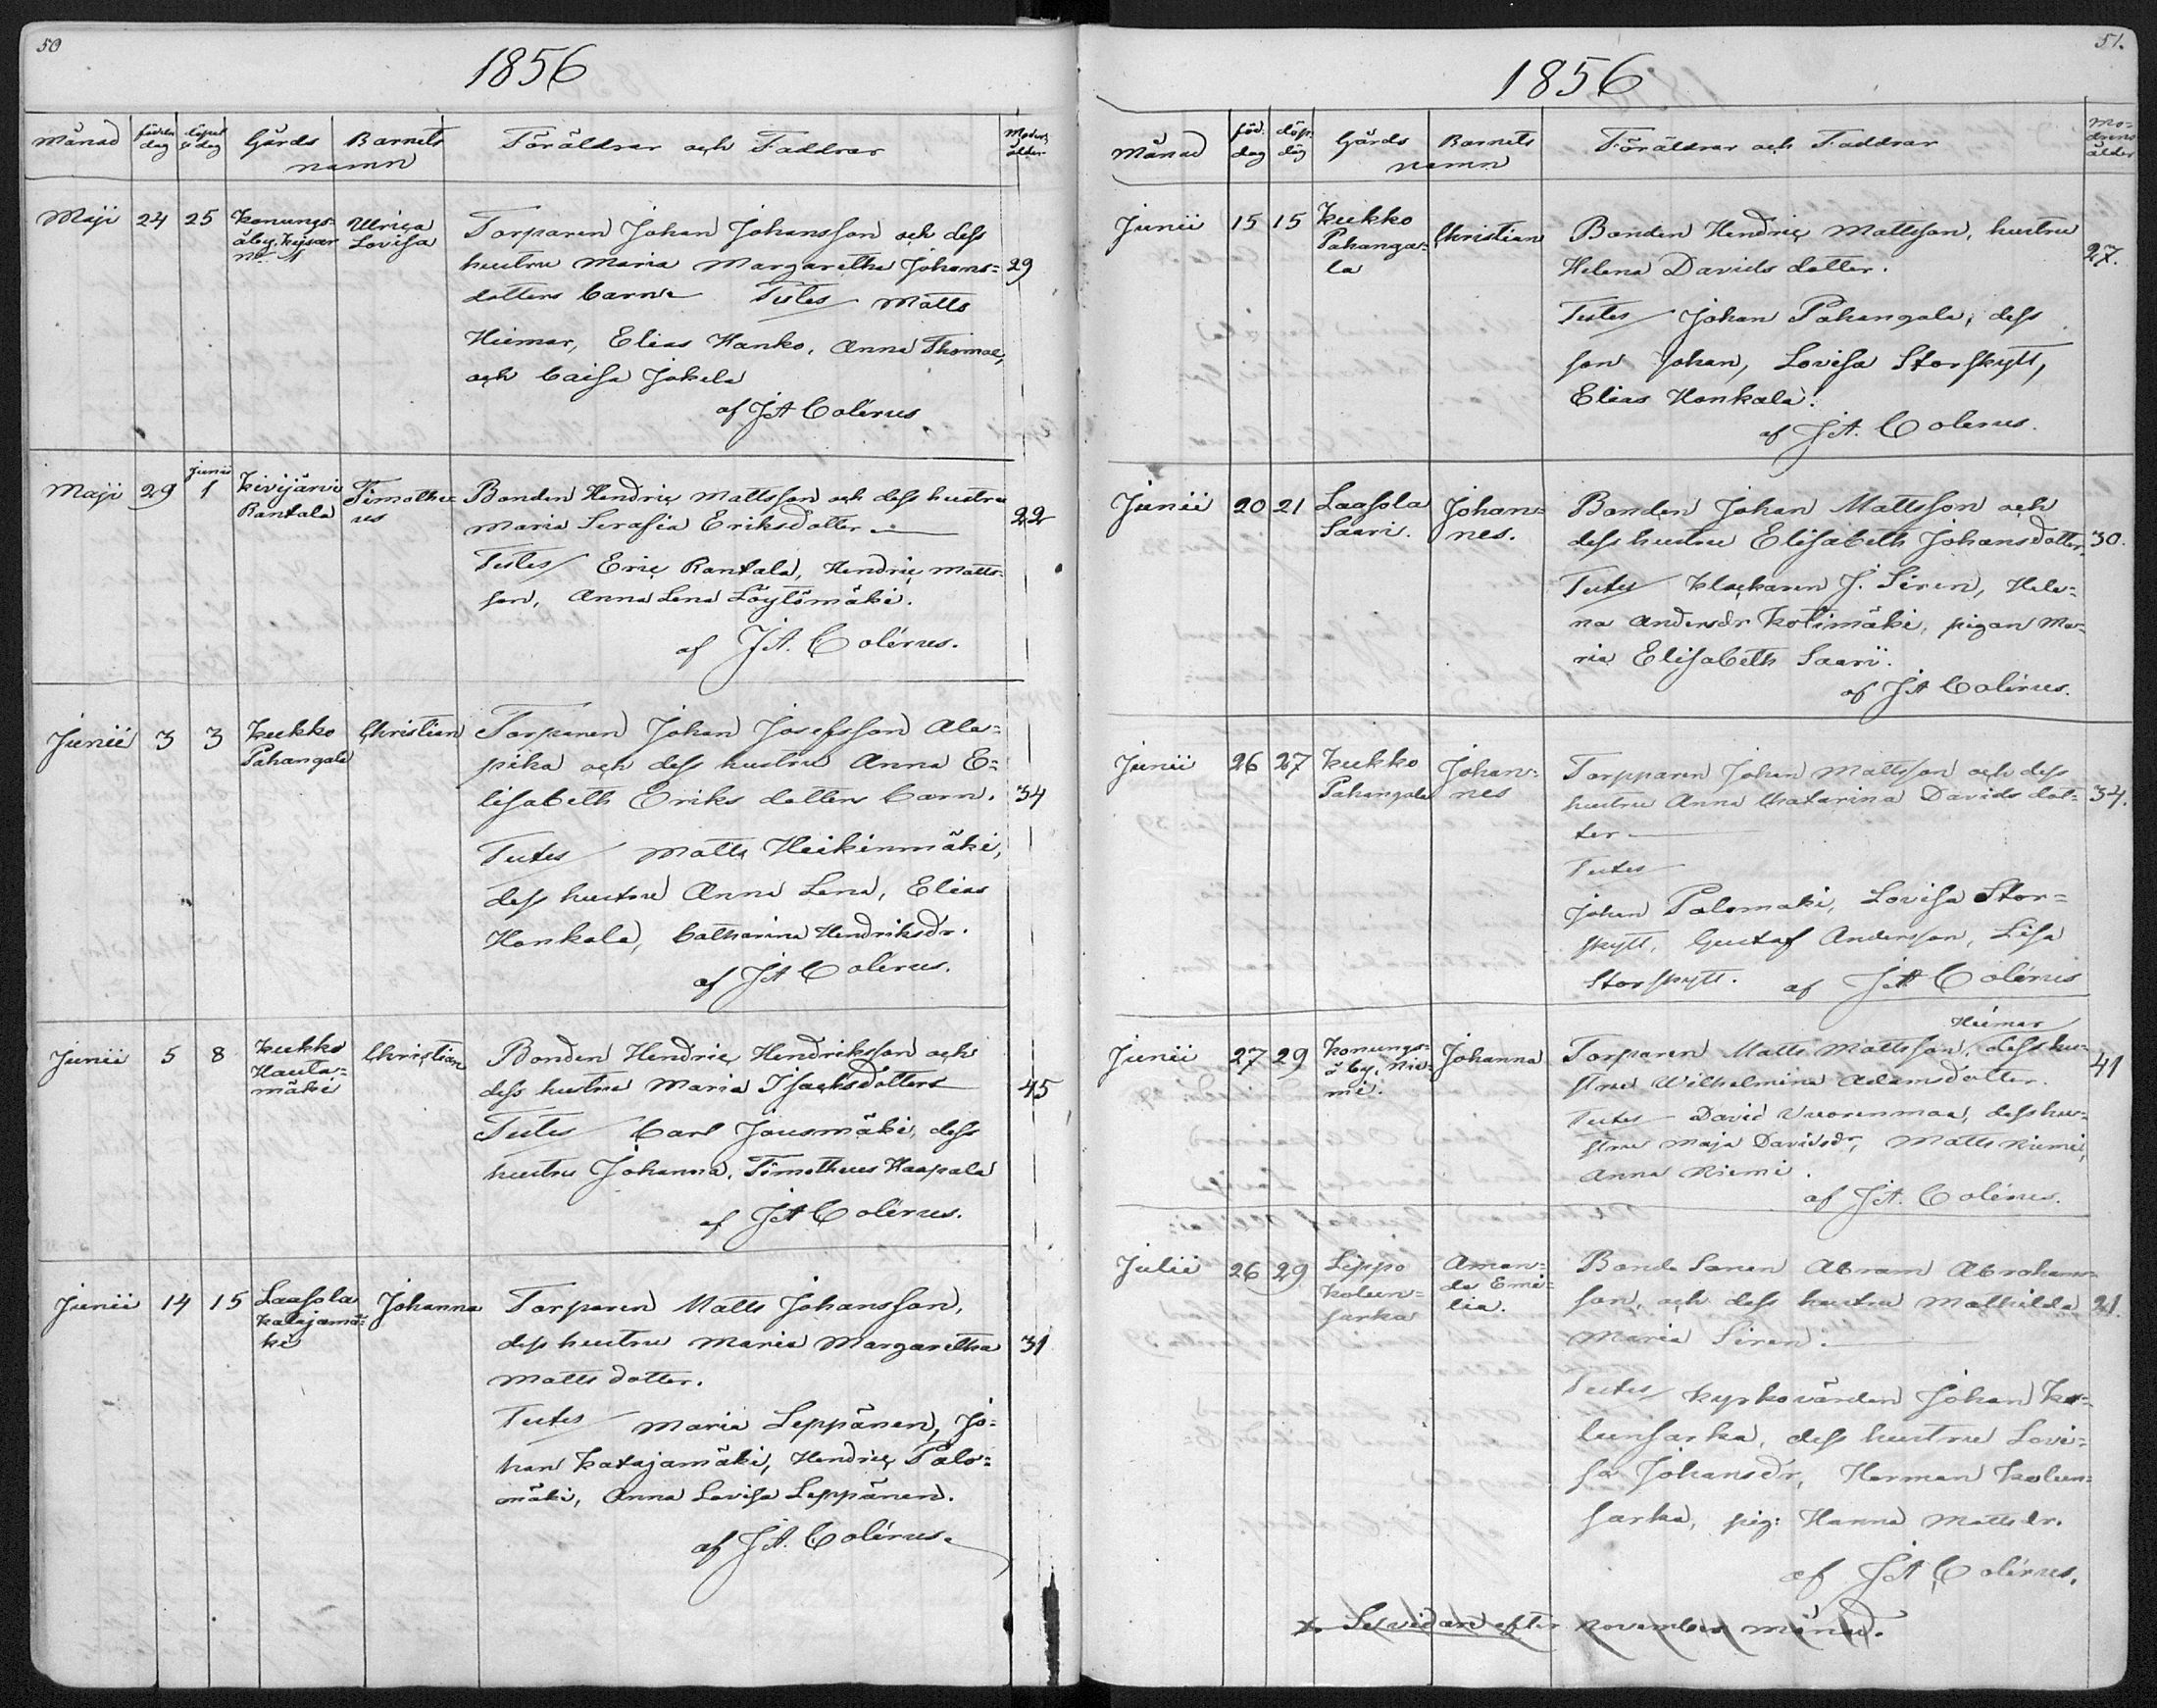 50
1856
Månad födelse dag döpelse dag Gårds Barnets namn Föräldrar och Faddrar Moders ålder
Maji 24 25 Konungs=
åby. Keisar
No 11
Ulrica
Lovisa
Torparen Johan Johansson och dess
hustru Maria Margaretha Johans= 29
dotters barn Testes Matts
Hiemar, Elias Hanko, Anna Thomae,
och Caisa Jokela
af JA Colérus
Maji 29 Junii 1 Kivijärvi
Rantala
Timothe=
us
Bonden Hendric Mattsson och dess hustru
Maria Serafia Eriksdotter 22
Testes Eric Rantala, Hendric Matts=
son, Anna Lena Löytömäki.
af JA. Colérus.
Junii 3 3 Kukko
Pahangala
Christian
Torparen Johan Josefsson Ala=
pika och dess hustru Anna E=
lisabeth Eriks dotters barn. 34
Testes Matts Heikinmäki,
dess hustru Anna Lena, Elias
Honkala, Catharina Hendriksdr.
af JA Colérus.
Junii 5 8 Kukko
Hauta=
mäki
Christian
Bonden Hendric Hendriksson och
dess hustru Maria Isacksdotters 45
Testes Carl Jousmäki, dess
hustru Johanna, Timotheus Haapala
af JA Colérus.
Junii 14 15 Laasola
Katajamä=
ki
Johanna
Torparen Matts Johansson,
dess hustru Maria Margaretha 31
Matts dotter.
Testes Maria Leppänen, Jo=
han Katajamäki, Hendric Palo=
mäki, Anna Lovisa Leppänen.
af JA. Colérus.
51.
1856
Månad föd. dag döp. dag Gårds Barnets namn Föräldrar och Faddrar Mo=
drens
ålder
Junii 15 15 Kukko
Pahanga=
la
Christian
Bonden Hendric Mattsson, hustru
Helena Davids dotter. 27.
Testes Johan Pahangala, dess
son Johan, Lovisa Storskytt,
Elias Honkala.
af JA. Colerus.
Junii 20 21 Laasola
Saari.
Johan=
nes.
Bonden Johan Mattsson och
dess hustru Elisabeth Johansdotter. 30.
Testes Klockaren J. Siren, Hele=
na Andersdr Kotimäki, pigan Ma=
ria Elisabeth Saari.
af JA Colérus.
Junii 26 27 Kukko
Pahangala
Johan=
nes
Torpparen Johan Mattsson och dess
hustru Anna Chatarina Davids dot= 34.
ter
Testes
Johan Palomaki, Lovisa Stor=
skytt, Gustaf Andersson, Lisa
Storskytt. af JA Colérus
Junii 27 29 Konungs=
åby. Nie=
mi.
Johanna
Hiemar
Torparen Matts Mattsson, dess hu=
stru Wilhelmina Adamsdotter. 41
Testes David Vuorenmaa, dess hu=
stru Maja Davidsdr, Matts Niemi,
Anna Niemi.
af JA. Colérus.
Julii 26 29 Lippo
Koluun=
sarka
Aman=
da Emi=
lia.
Bonde Sonen Abram Abrahams=
son, och dess hustru Mathilda 21.
Maria Siren.
Testes Kyrkovärden Johan Ko=
luinsarka, dess hustru Lovi=
sa Johansdr, Herman Koluin=
sarka, pig: Hanna Mattsdr.
af JA Colérus.
x. Se vidare efter November månad.